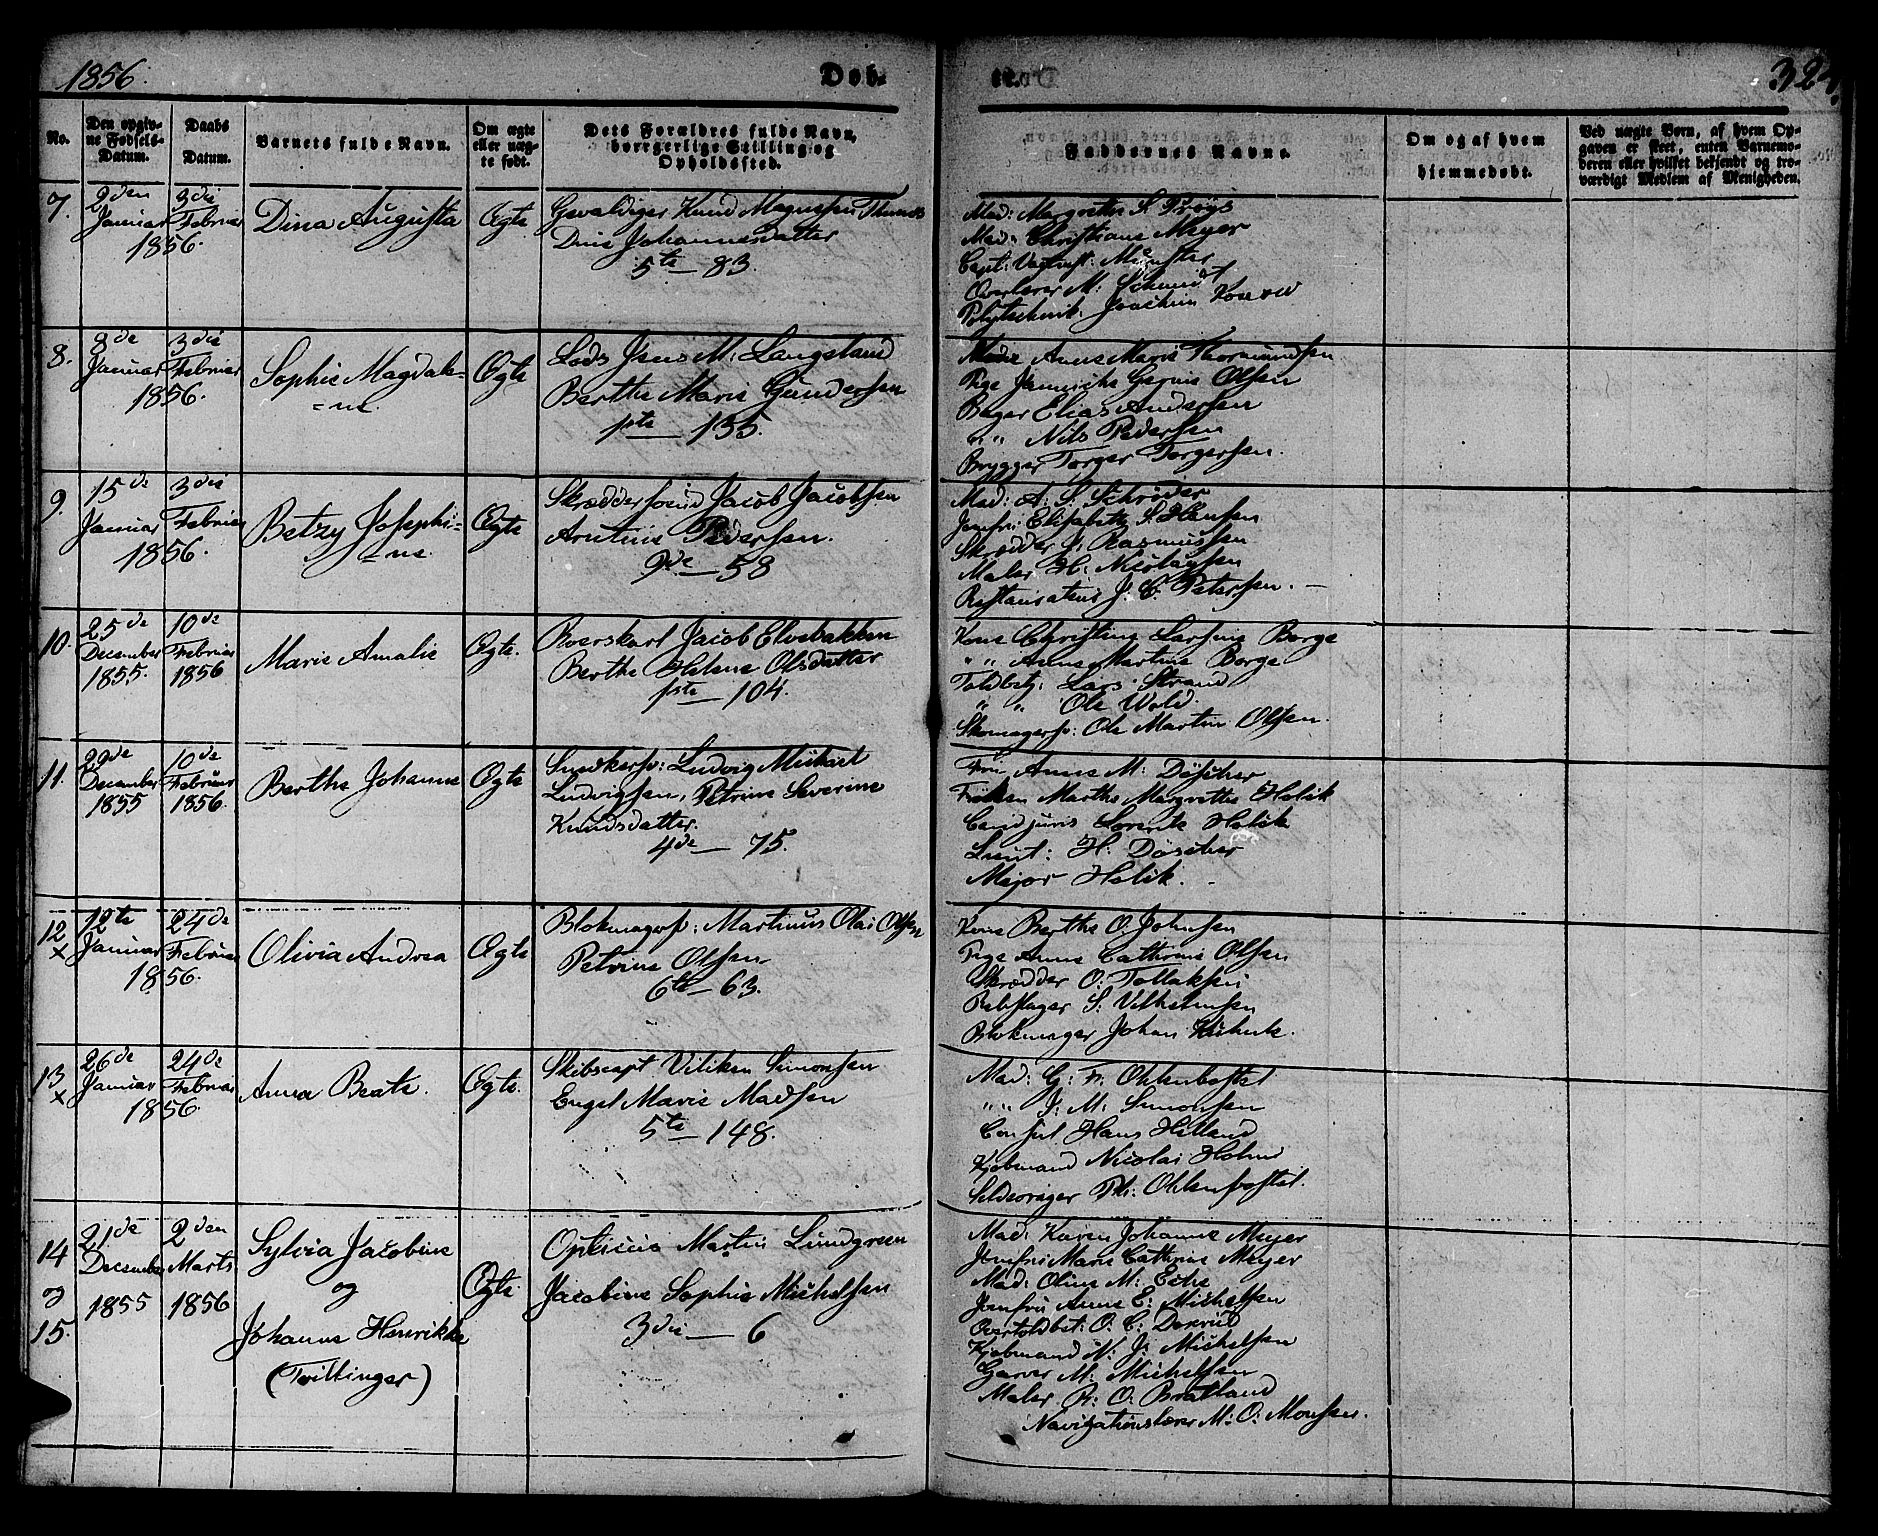 1856.
Døbte.
324.
No.
Den opgiv-
ne Fødsels-
Datum.
Daabs
Datum.
Barnets fulde Navn.
Om ægte
eller uæg-
te født.
Dets Forældres fulde Navn,
borgerlige Stilling og
Opholdssted.
Faddernes Navne.
Om og af hvem
hjemmedøbt.
Ved uægte Børn, af hvem Op-
gaven er skeet, enten Barnemo-
deren eller hvilket bekjendt og tro-
værdigt Medlem af Menigheden.
7.
2den
Januar
1856.
3die
Februar
Dina Augusta
Ægte
Gevaldiger Knud Magnussen
Johannesdatter
5te – 83.
Mad: Margrethe S.
Mad: Christiane Meyer
Capt: Münster
Overlærer M: Schmidt
Polytechnik: Joachim Konow
8.
8de
Januar
1856.
3die
Februar
Sophie Magdale=
=ne.
Ægte
Lods Jens M: Langeland
Berthe Marie Gundersen
1ste – 135.
Anne Marie Thormundsen
Pige Olsen
Bager Elias Andersen
" " Nils Pedersen
Brygger Torger Torgersen.
9.
15de
Januar
1856.
3die
Februar
Betzy Josephi=
=ne.
Ægte
Skrædder Jacob Jacobsen
Pedersen.
9de – 58
Mad: A: S. Schrøder
Jomfru: Elisabeth S. Hansen
Skrædder J: Rasmussen
Maler H: Nicolaysen
Restaurateur J: C: Petersen. –
10.
25de
December
1855.
10de
Februar
1856
Marie Amalie
Ægte.
Roerskarl Jacob Elvebakken
Berthe Helene Olsdatter
1ste – 104.
Kone Borge
" " Anne Martine Borge
Toldbetj: Lars Strand
" " Ole Wold.
Skomagersv: Ole Martin Olsen.
11.
29de
December
1855
10de
Februar
1856.
Berthe Johanne
Ægte
Snedkersv: Ludvig Michael
Ludvigsen, Petrine Severine
Knudsdatter.
4de – 75.
Fru Anne M: Döscher
Frøken Marthe Margrethe Helik
Cand juris Helik
Lieut: H: Döscher
Major Helik.
12
x
12te
Januar
1856.
24de
Februar
Olivia Andrea
Ægte
Blokmagersv: Martinus Olai Olsen
Petrine Olsen
6te – 63.
Kone Berthe O. Johnsen
Pige Anne Cathrine Olsen
Skrædder O: Tollaksen
Rebslager S: Vilhelmsen
Blokmager Johan
13
x
26de
Januar
1856.
24de
Februar
Anna Beate.
Ægte.
Skibscapt Simonsen
Engel Marie Madsen
5te – 148.
Mad: G: Fr: Ohlenbostel
" " J: M: Simonsen
Consul Hans
Kjøbmand Nicolai Holm
Ohlenbostel.
14
og
15.
21de
December
1855
2den
Marts
1856
Sylvia Jacobine
og
Johanne Henrikke
(Tvillinger)
Ægte
Opticus Martin Lundgreen
Jacobine Sophie Michelsen
3die – 6
Mad: Karen Johanne Meyer
Jomfru Marie Cathrine Meyer
Mad: Oline M:
Jomfru Anne E: Michelsen
Overtoldbet: O: C:
Kjøbmand N: J: Michelsen
Garver M: Michelsen
Maler R: O: Bratland
Navigationslærer M: O: Monsen.